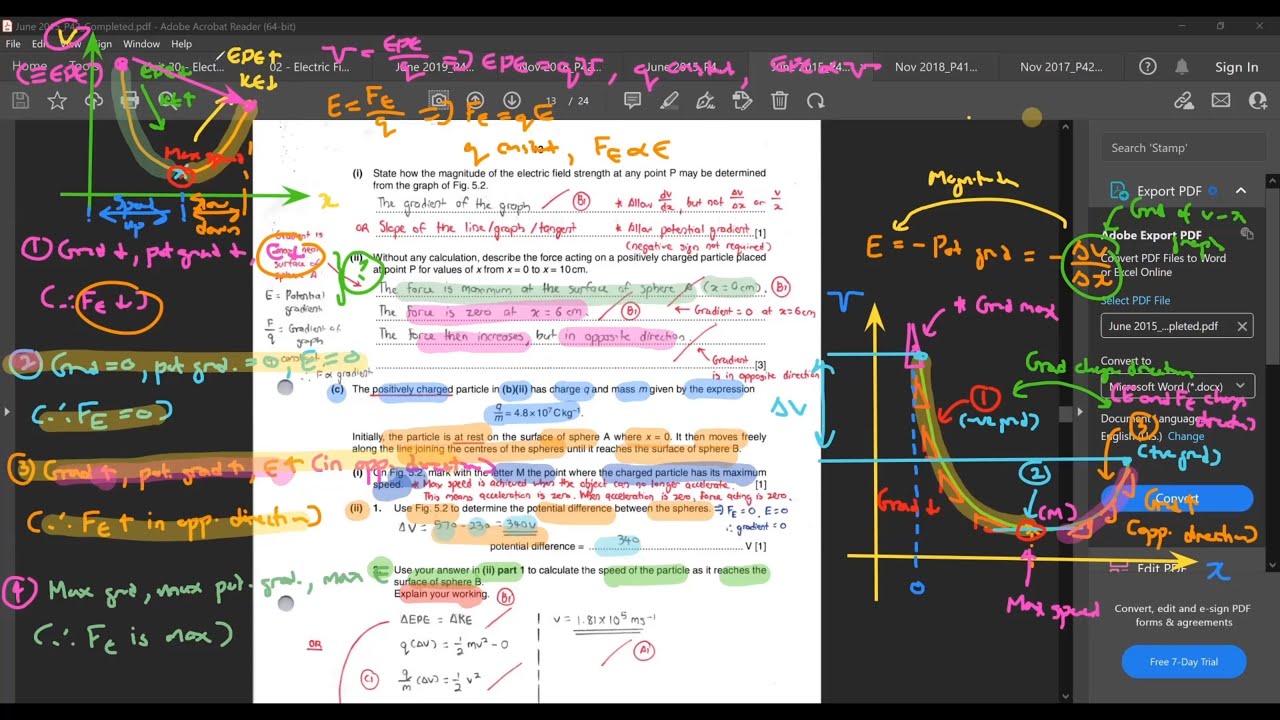 June 2015_P42_Completed.pdf - Adobe Acrobat Reader (64-bit)
File Edit View Sign Window Help
Home Tools
02 - Electric Fi... June 2019_P4... Nov 2016_P42... June 2015_P4... June 2015_P4... Nov 2018_P41... Nov 2017_P42... Sign In
13 / 24
V
(≡EPE)
EPE↓
KE↑
EPE↑
KE↓
Max speed
x
Speed up
Slow down
V = EPE/q ⇒ EPE = qV, q const, EPE ∝ V
E = F_E/q ⇒ F_E = qE
q constant, F_E ∝ E
(i) State how the magnitude of the electric field strength at any point P may be determined
from the graph of Fig. 5.2.
The gradient of the graph
B1
* Allow dV/dx, but not ΔV/Δx or V/x
OR Slope of the line/graph/tangent
* Allow potential gradient [1]
(negative sign not required)
(ii) Without any calculation, describe the force acting on a positively charged particle placed
at point P for values of x from x = 0 to x = 10 cm.
The force is maximum at the surface of sphere A (x = 0cm). B1
The force is zero at x = 6 cm. B1 ← Gradient = 0 at x=6cm
The force then increases, but in opposite direction.
[3]
Gradient
is in opposite direction
Gradient is
surface of
sphere A
?
E = Potential
gradient
F/q = Gradient of
graph
constant
∴ F ∝ gradient
(c) The positively charged particle in (b)(ii) has charge q and mass m given by the expression
q/m = 4.8 × 10⁷ C kg⁻¹.
Initially, the particle is at rest on the surface of sphere A where x = 0. It then moves freely
along the line joining the centres of the spheres until it reaches the surface of sphere B.
(i) On Fig. 5.2, mark with the letter M the point where the charged particle has its maximum
speed. * Max speed is achieved when the object can no longer accelerate. [1]
This means acceleration is zero. When acceleration is zero, force acting is zero.
(ii) 1. Use Fig. 5.2 to determine the potential difference between the spheres. ⇒ F_E = 0, E = 0
∴ gradient = 0
ΔV = 570 - 230 = 340V
potential difference = 340 V [1]
2. Use your answer in (ii) part 1 to calculate the speed of the particle as it reaches the
surface of sphere B.
Explain your working. B1
ΔEPE = ΔKE
OR
q(ΔV) = ½mv² - 0
C1 q/m (ΔV) = ½v²
v = 1.81 × 10⁵ ms⁻¹
A1
① Grad ↓, pot grad ↓, E↓
(∴ F_E ↓)
② Grad = 0, pot grad. = 0, E = 0
(∴ F_E = 0)
③ Grad ↑, pot grad ↑, E↑ (in opp. direction)
(∴ F_E ↑ in opp. direction)
④ Max grad, max pot. grad., max E
(∴ F_E is max)
Magnitude
E = - Pot grad = - ΔV/Δx
Grad of V-x
graph
V
* Grad max
Grad change direction
(E and F_E chngs
directn)
ΔV
①
(-ve grad)
②
(M)
③
(+ve grad)
Grad ↓
Grad ↑
(opp. direction)
0
x
Max speed
Search 'Stamp'
Export PDF
Adobe Export PDF
Convert PDF Files to Word
or Excel Online
Select PDF File
June 2015_...pleted.pdf
Convert to
Microsoft Word (*.docx)
Document Language:
English (U.S.) Change
Convert
Edit PDF
Convert, edit and e-sign PDF
forms & agreements
Free 7-Day Trial